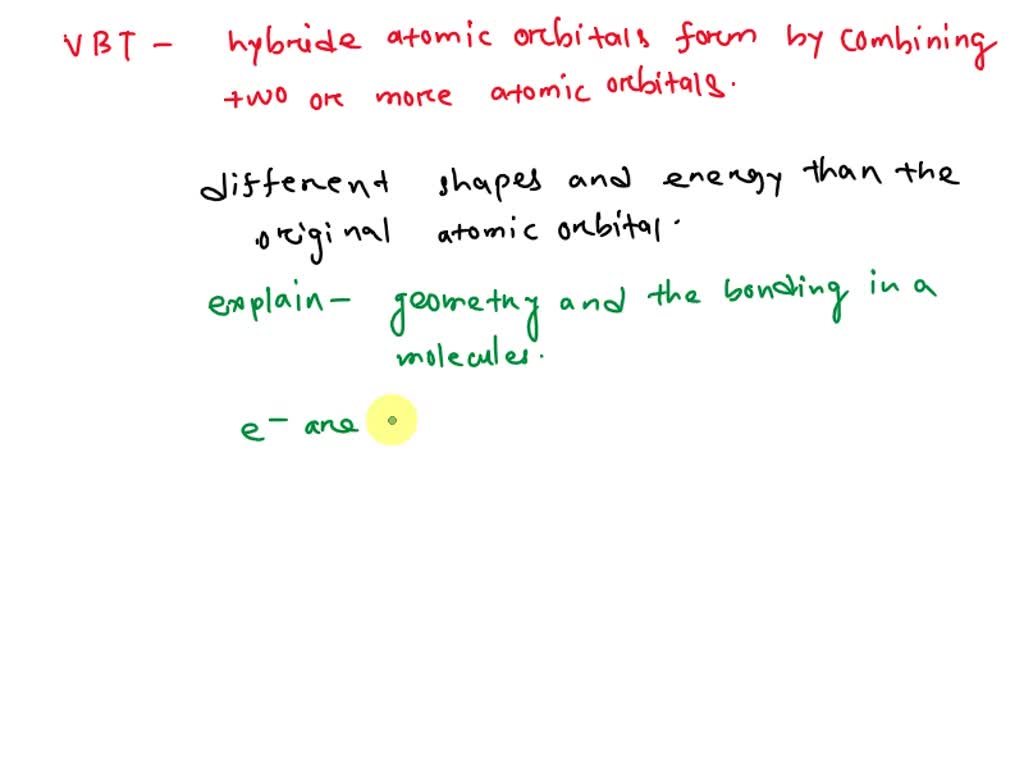 VBT - hybride atomic orbitals form by combining
two or more atomic orbitals.
different shapes and energy than the
original atomic orbital.
explain - geometry and the bonding in a
molecules.
e⁻ are